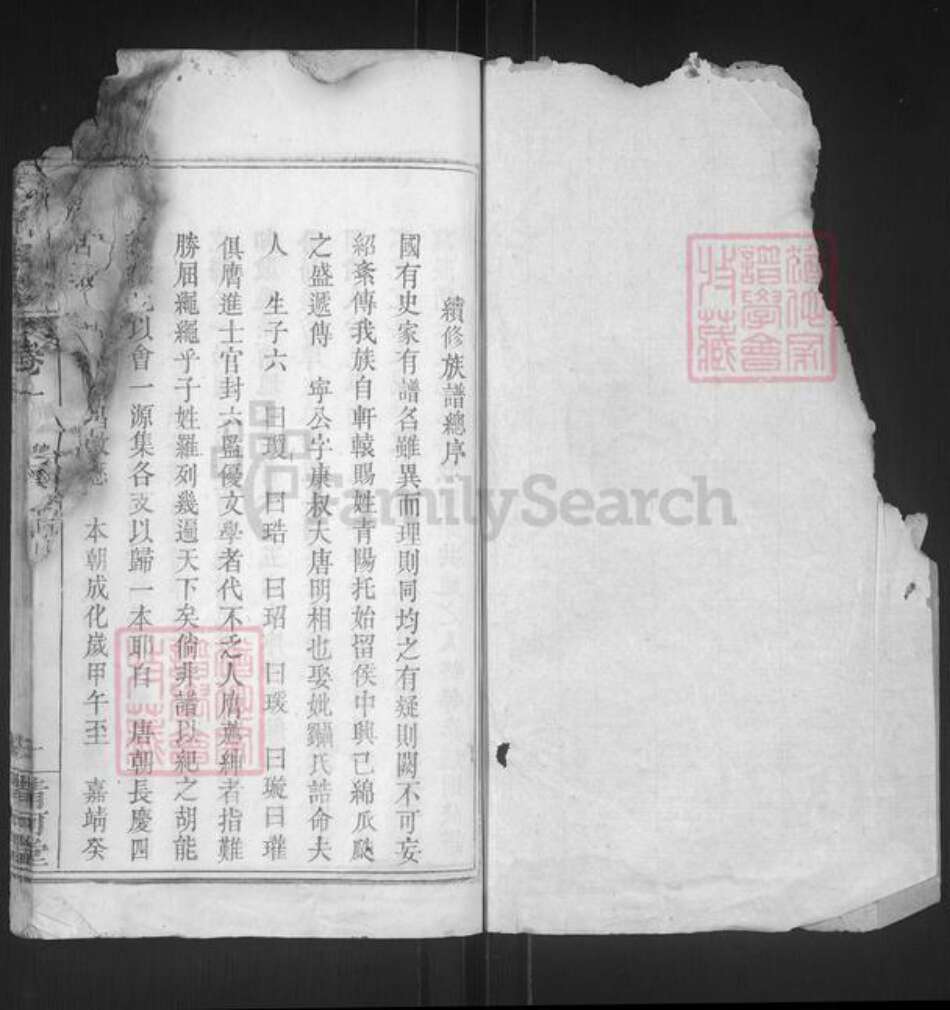 續修族譜總序
國有史家有譜名雖異而理則同均之有疑則闕不可妄
紹紊傳我族自軒轅賜姓青陽托始留侯中興已綿瓜瓞
之盛遞傳 寧公字康叔大唐明相也娶妣氏誥命夫
人 生子六 曰瑗 曰珸 曰玿 曰瑗 曰璇曰瓘
俱膺進士官封六監優文學者代不乏人膺薦紳者指難
勝屈繩繩乎子姓羅列幾遍天下矣倘非譜以紀之胡能
以會一源集各支以歸一本耶自 唐朝長慶四
本朝成化歲甲午至 嘉靖癸
卷一
清河堂
FamilySearch
譜學會
收藏